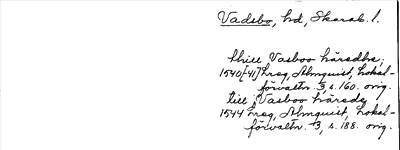 Vadsbo, hd, Skarab. l.
thill Vasboo häredhz,
1540[41] hreg, Almquist, Lokal-
förvaltn. 3, s. 160. orig.
till Vasboo häredz
1544 hreg, Almquist, Lokal-
förvaltn. 3, s. 188. orig.